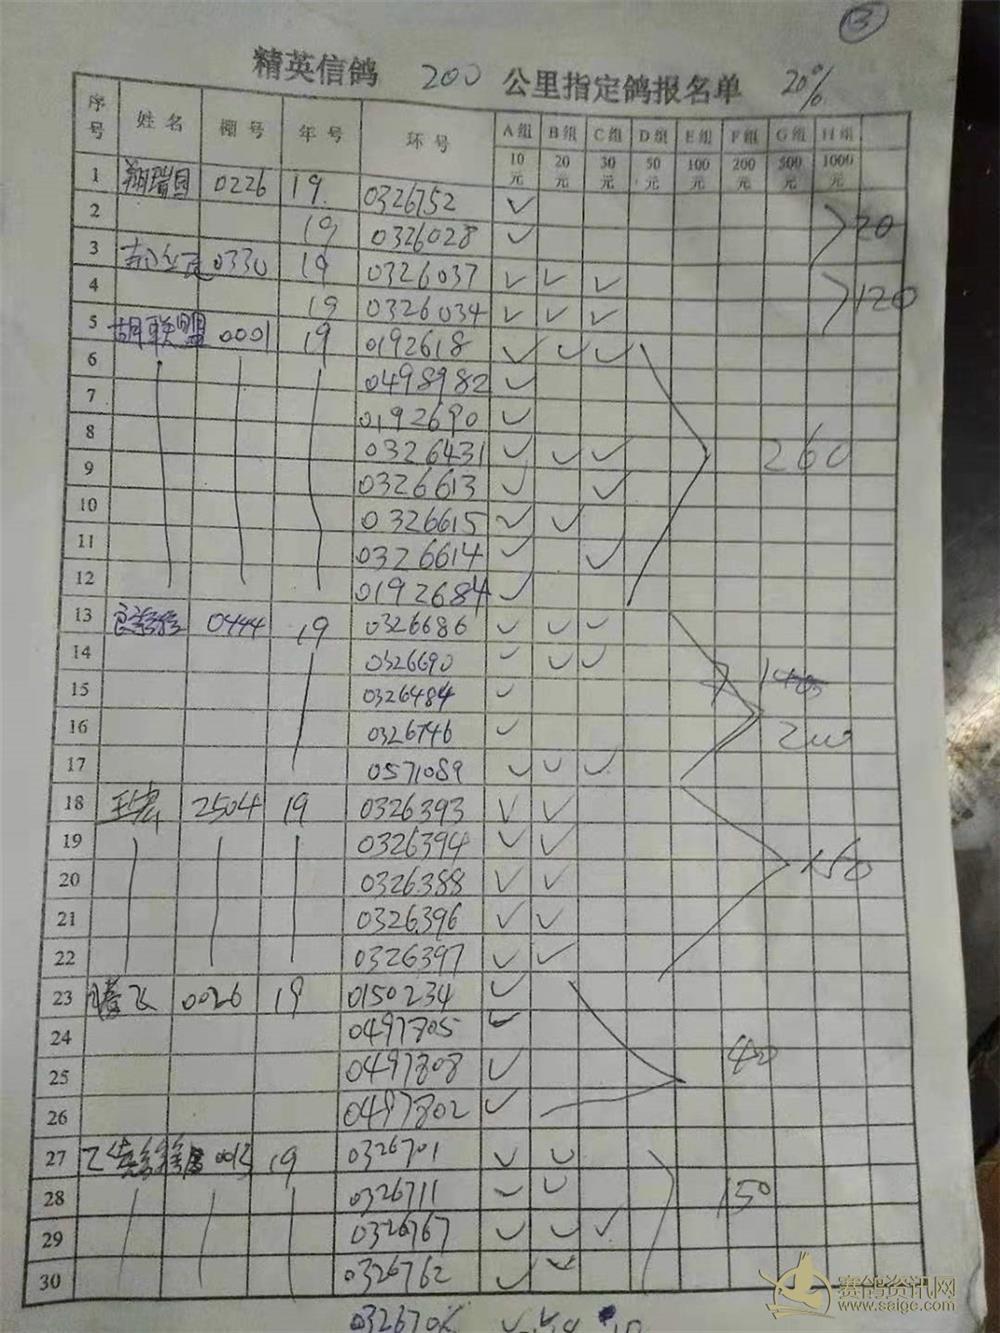 13
精英信鸽 200 公里指定鸽报名单 20%
序号 姓名 棚号 年号 环号 A组 B组 C组 D组 E组 F组 G组 H组
10元 20元 30元 50元 100元 200元 500元 1000元
1 翔瑞园 0226 19. 0326752 ✓
2 19 0326028 ✓ 20
3 0330 19 0326037 ✓ ✓ ✓
4 19 0326034 ✓ ✓ ✓ 120
5 胡联盟 0001 19 0192618 ✓ ✓ ✓
6 0498982 ✓
7 0192690 ✓
8 0326431 ✓ ✓ ✓ 260
9 0326613 ✓ ✓
10 0326615 ✓ ✓
11 0326614 ✓ ✓
12 0192684 ✓
13 0444 19 0326686 ✓ ✓ ✓
14 0326690 ✓ ✓ ✓
15 0326484 ✓
16 0326746 ✓ 200
17 0571089 ✓ ✓ ✓
18 王宏 2504 19 0326393 ✓ ✓
19 0326394 ✓ ✓
20 0326388 ✓ ✓ 150
21 0326396 ✓ ✓
22 0326397 ✓ ✓
23 腾飞 0026 19 0150234 ✓
24 0497705 ✓
25 0497808 ✓ 40
26 0497802 ✓
27 0013 19 0326701 ✓ ✓
28 0326711 ✓ ✓ 150
29 0326767 ✓ ✓ ✓
30 0326762 ✓ ✓
赛鸽资讯网
www.saigc.com